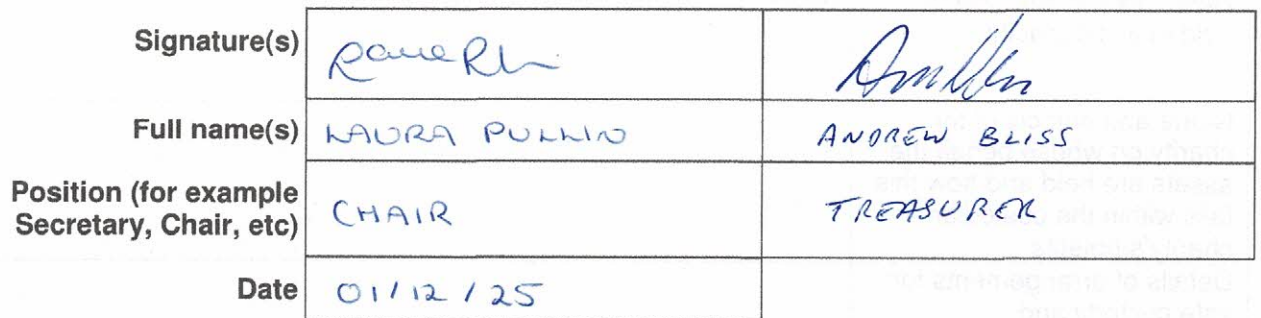 Signature(s)
Full name(s) LAURA PULLIN ANDREW BLISS
Position (for example
Secretary, Chair, etc) CHAIR TREASURER
Date 01/12/25